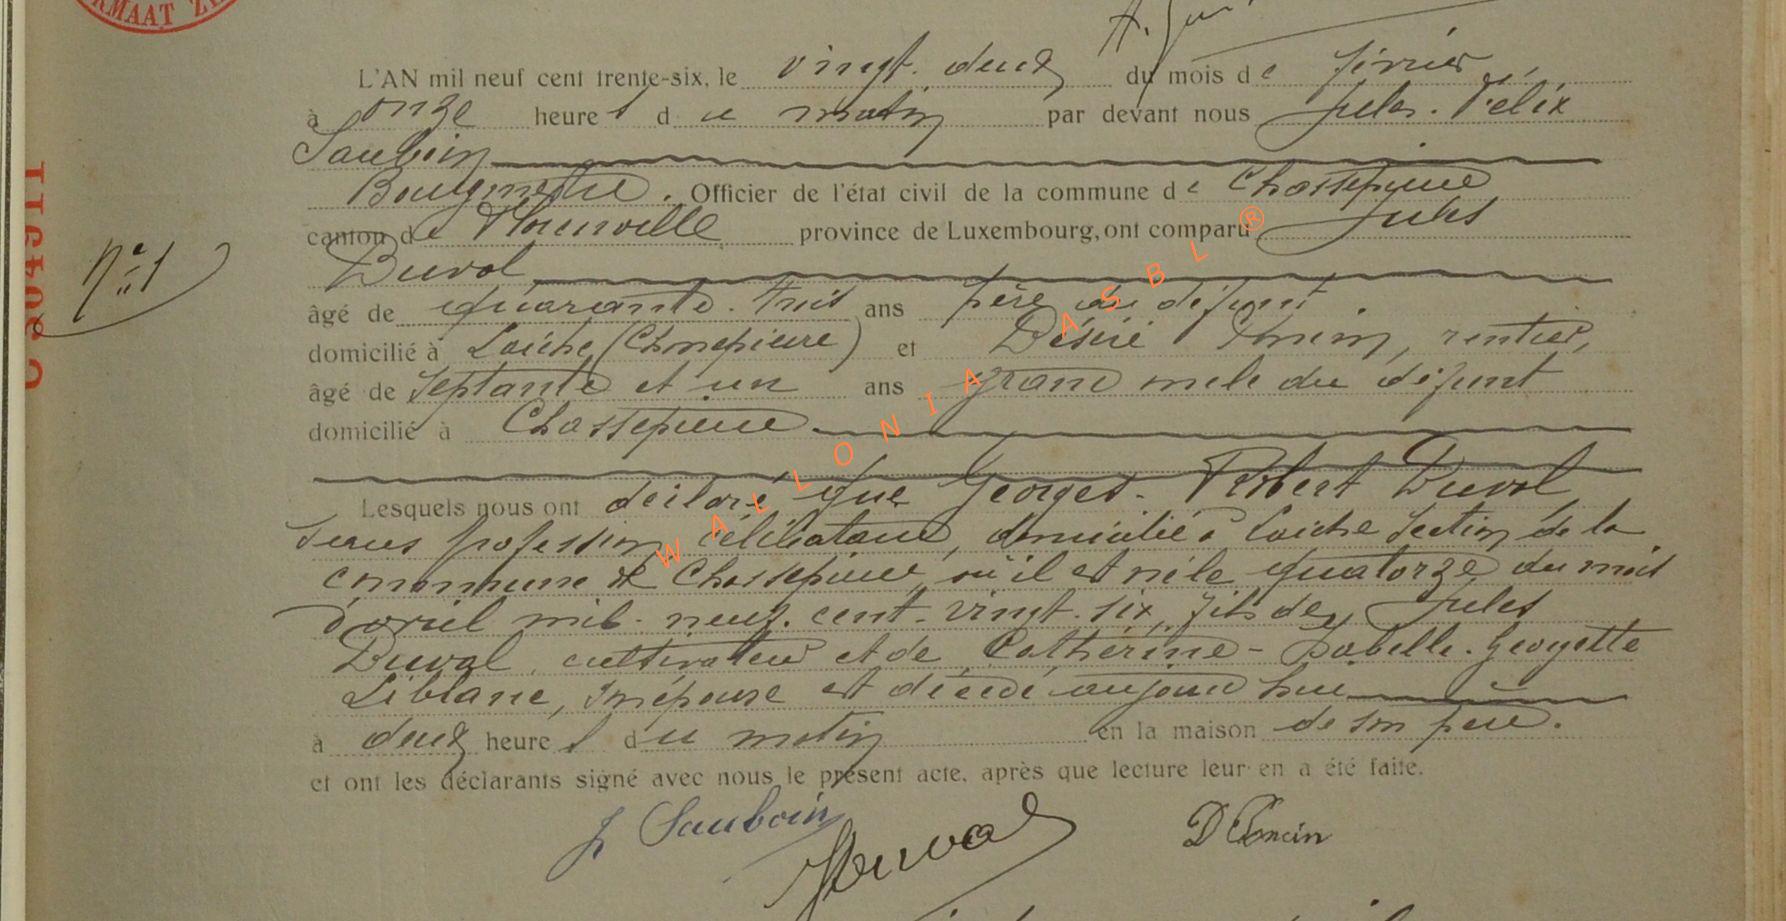 RMAAT ZE
L'AN mil neuf cent trente-six, le vingt. deux du mois de février,
à onze heures du matin par devant nous Jules. Félix
Sauboin
Bourgmestre. Officier de l'état civil de la commune de Chassepierre
canton de Florenville province de Luxembourg, ont comparu Jules
Duval
N° 1
âgé de quarante. trois ans père du défunt
domicilié à Laiche (Chassepierre) et Désiré rentier,
âgé de septante et un ans grand oncle du défunt
domicilié à Chassepierre
Lesquels nous ont déclaré que Georges. Robert Duval
sans profession, célibataire, domicilié à Laiche section de la
commune de Chassepierre, où il est né le quatorze du mois
d'avril mil. neuf. cent. vingt. six, fils de Jules
Duval, cultivateur et de Catherine - Isabelle. Georgette
Leblanc, son épouse est décédé aujourd'hui
à deux heures du matin en la maison de son père.
et ont les déclarants signé avec nous le présent acte, après que lecture leur en a été faite.
J Sauboin
JDuval
WALLONIA ASBL®